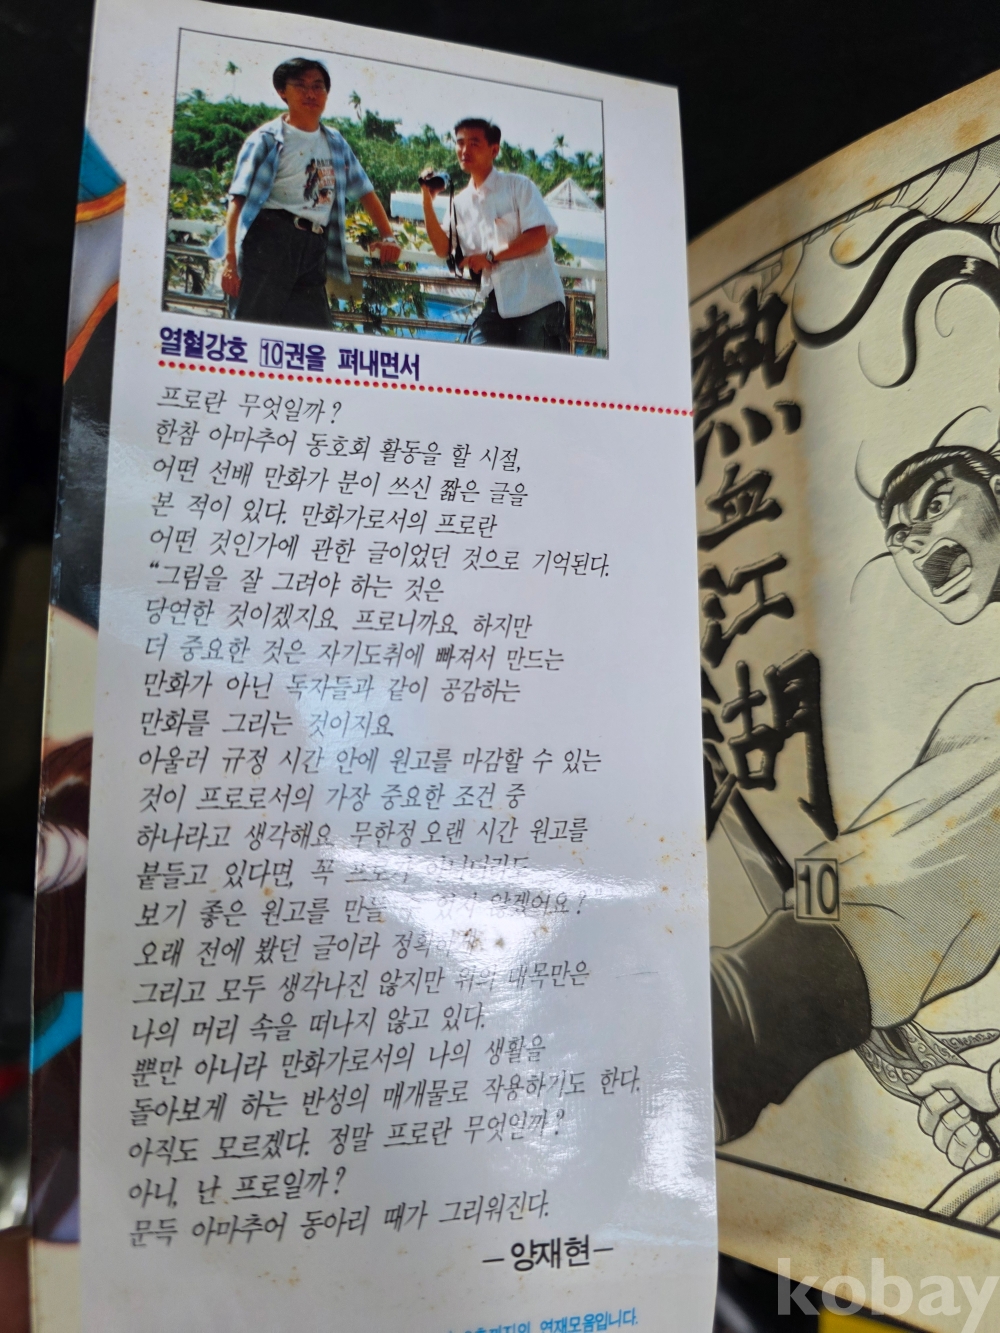 열혈강호 10권을 펴내면서
프로란 무엇일까?
한참 아마추어 동호회 활동을 할 시절,
어떤 선배 만화가 분이 쓰신 짧은 글을
본 적이 있다. 만화가로서의 프로란
어떤 것인가에 관한 글이었던 것으로 기억된다.
“그림을 잘 그려야 하는 것은
당연한 것이겠지요. 프로니까요. 하지만
더 중요한 것은 자기도취에 빠져서 만드는
만화가 아닌 독자들과 같이 공감하는
만화를 그리는 것이지요.
아울러 규정 시간 안에 원고를 마감할 수 있는
것이 프로로서의 가장 중요한 조건 중
하나라고 생각해요. 무한정 오랜 시간 원고를
붙들고 있다면, 꼭 프로가 아니더라도
보기 좋은 원고를 만들 수 있지 않겠어요?”
오래 전에 봤던 글이라
그리고 모두 생각나진 않지만 위의 대목만은
나의 머리 속을 떠나지 않고 있다.
뿐만 아니라 만화가로서의 나의 생활을
돌아보게 하는 반성의 매개물로 작용하기도 한다.
아직도 모르겠다. 정말 프로란 무엇인까?
아니, 난 프로일까?
문득 아마추어 동아리 때가 그리워진다.
–양재현–
연재모음입니다.
熱血江湖
10
kobay